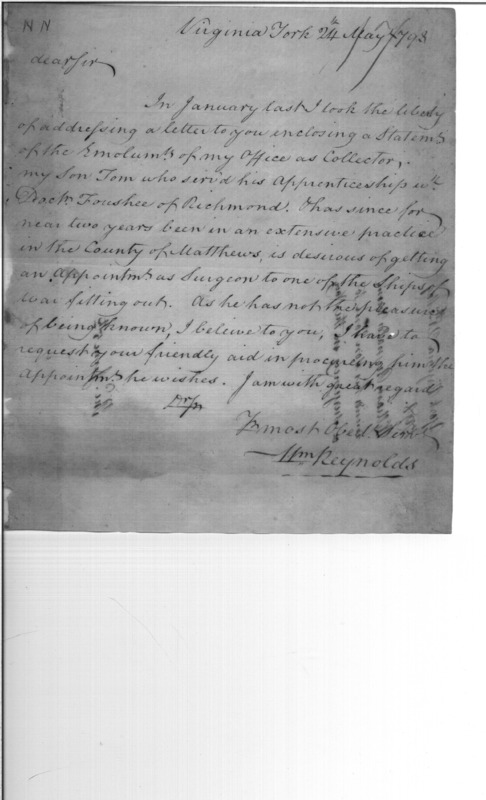 N N
Virginia York 24th May 1798
dear Sir
In January last I took the liberty
of addressing a letter to you inclosing a Statemt
of the Emolumts of my Office as Collector,
my Son Tom who serv'd his Apprenticeship wth
Doctr Foushee of Richmond. & has since for
near two years been in an extensive practice
in the County of Matthews, is desirous of getting
an Appointmt as Surgeon to one of the Ships of
war fitting out. As he has not the pleasure
of being known, I beleive to you, I have to
request your friendly aid in procuring him the
Appointmt he wishes. I am with great regard
Dr Sir
Yr most Obedt Servt
Wm Reynolds